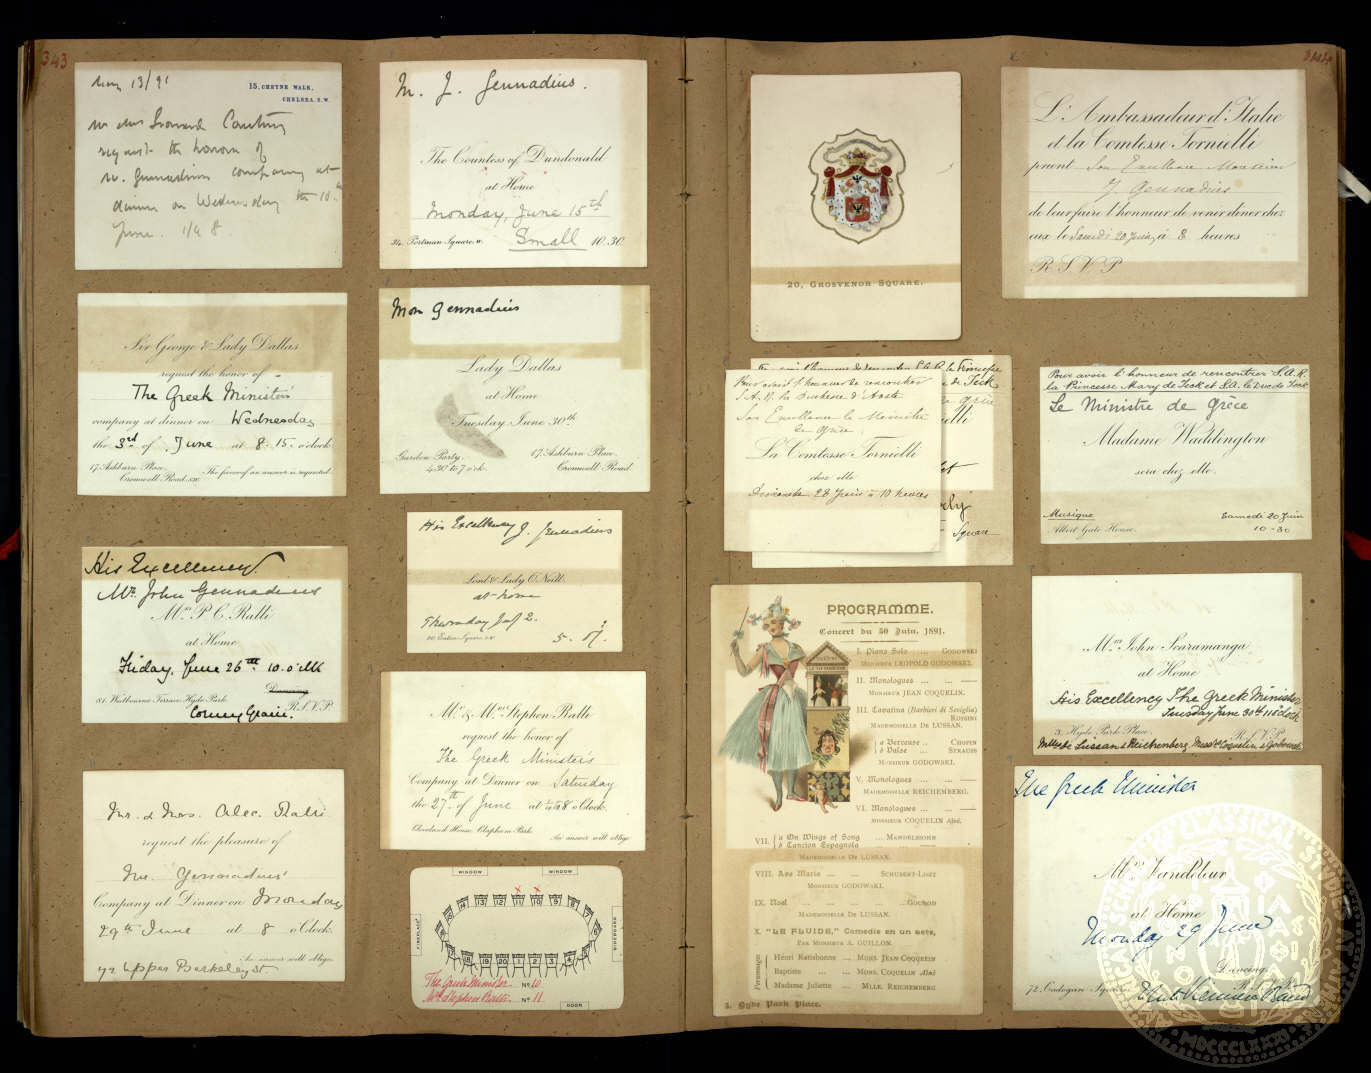 343
May 13/91
15, CHEYNE WALK,
CHELSEA. S.W.
request the honour of
Mr. Gennadius company at
dinner on Wednesday the 10th
June. 1/4 8.
Sir George & Lady Dallas
request the honor of
The Greek Minister's
company at dinner on Wednesday
the 3rd of June at 8.15. o'clock
17. Ashburn Place,
Cromwell Road, S.W.
The favor of an answer is requested.
His Excellency
Mr. John Gennadius
Mrs. P. C. Ralli
at Home
Friday, June 26th 10. o'clk
Dancing
81. Westbourne Terrace Hyde Park.
R.S.V.P.
Corney Grain.
Mr. & Mrs. Alec. Ralli
request the pleasure of
Mr. Gennadius'
Company at Dinner on Monday
29th June at 8 o'Clock.
An answer will oblige.
92 Upper Berkeley St.
M. J. Gennadius.
The Countess of Dundonald
at Home
Monday, June 15th
Small 10.30
34. Portman Square. W.
Mon Gennadius
Lady Dallas
at Home
Tuesday June 30th
Garden Party.
4.30 to 7 o'ck.
17. Ashburn Place.
Cromwell Road.
His Excellency J. Gennadius
Lord & Lady O'Neill
at home
Thursday July 2.
Eaton Square. S.W.
Mr. & Mrs. Stephen Ralli
request the honor of
The Greek Minister's
Company at Dinner on Saturday
the 27th of June at 1/4 to 8 o'Clock.
Cleveland House. Clapham Park.
An answer will oblige
WINDOW
WINDOW
FIREPLACE
SIDEBOARD
15 14 13 12 11 10 9 8 7
18 19 20 1 2 3 4
The Greek Minister No. 10
Mrs Stephen Ralli No. 11
DOOR
20, GROSVENOR SQUARE.
Pour avoir l'honneur de rencontrer
S.A.R. la Duchesse d'Aoste
Son Excellence le Ministre
de Grèce
La Comtesse Tornielli
chez elle
Dimanche 28 Juin à 10 heures
de Teck
Square
PROGRAMME.
Concert du 30 Juin, 1891.
I. Piano Solo ... GODOWSKI
MONSIEUR LEOPOLD GODOWSKI.
II. Monologues ... ...
MONSIEUR JEAN COQUELIN.
III. Cavatina (Barbieri di Seviglia)
ROSSINI
MADEMOISELLE DE LUSSAN.
a Berceuse .. CHOPIN
b Valse ... STRAUSS
MONSIEUR GODOWSKI.
V. Monologues ... ...
MADEMOISELLE REICHEMBERG.
VI. Monologues ... ...
MONSIEUR COQUELIN Aîné.
VII. a On Wings of Song ... MENDELSSOHN
b Cancion Espagnola
MADEMOISELLE DE LUSSAN.
VIII. Ave Maria ... ... SCHUBERT-LISZT
MONSIEUR GODOWSKI.
IX. Noel ... ... GOUNOD
MADEMOISELLE DE LUSSAN.
X. "LE FLUIDE," Comédie en un acte,
PAR MONSIEUR A. GUILLON.
Personnages
Henri Ratisbonne ... MONS. JEAN COQUELIN
Baptiste ... MONS. COQUELIN Aîné
Madame Juliette ... MLLE. REICHEMBERG
3. Hyde Park Place.
L'Ambassadeur d'Italie
et la Comtesse Tornielli
prient Son Excellence Monsieur
J. Gennadius
de leur faire l'honneur de venir diner chez
eux le Samedi 20 Juin, à 8 heures
R.S.V.P
Pour avoir l'honneur de rencontrer S.A.R.
la Princesse Mary de Teck et S.A. le Duc de Teck
Le Ministre de Grèce
Madame Waddington
sera chez elle.
Musique
Albert Gate House.
Samedi 20 Juin
10-30
Mrs. John Scaramanga
at Home
His Excellency The Greek Minister
Tuesday June 30th 11 o'clock
3. Hyde Park Place.
R.S.V.P.
Mlles de Lussan & Reichemberg. Messrs Coquelin & Godowski
The Greek Minister
Mrs. Vandeleur
at Home
Monday 29 June
Dancing
72. Cadogan Square
Viennese Band
MDCCCLXXXI